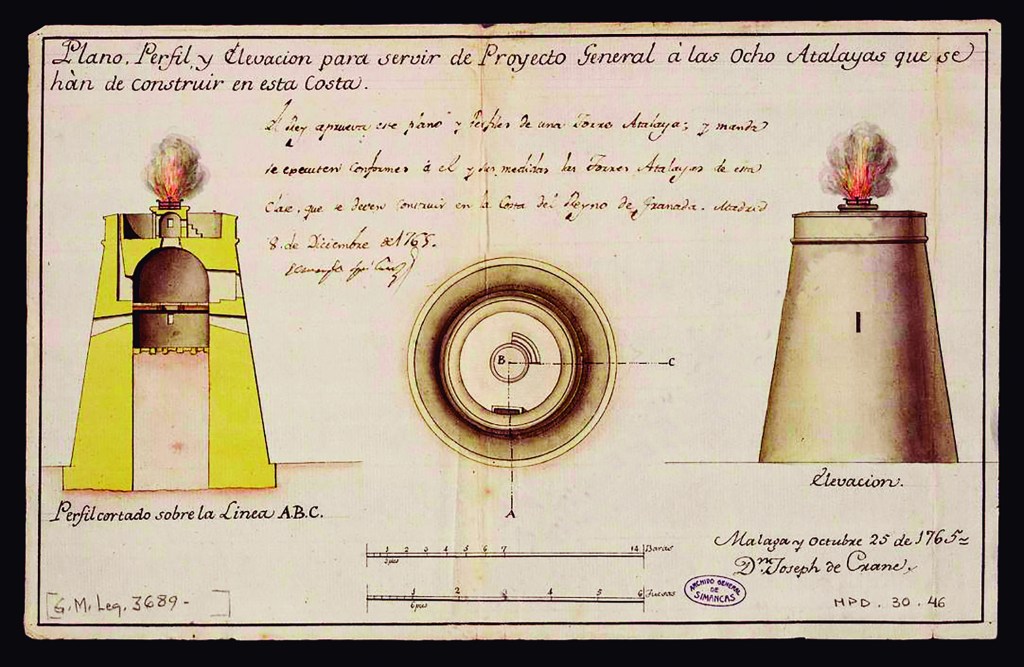 Plano, Perfil, y Elevacion para servir de Proyecto General à las Ocho Atalayas que se
hàn de construir en esta Costa.
El Rey aprueva este plano y Perfiles de una Torre Atalaya; y manda
se executen conformes à el y sus medidas las Torres Atalayas de esta
Clase, que se deven construir en la Costa del Reyno de Granada. Madrid
8. de Diciembre de 1765.
B
C
A
Perfil cortado sobre la Linea A.B.C.
Elevacion.
1 2 3 4 5 6 7 14 Baras
3 pies
1 2 3 4 5 6 Tuesas
6 pies
Malaga y Octubre 25 de 1765
Dn. Joseph de Crane
ARCHIVO GENERAL
DE
SIMANCAS
G. M. Leg. 3689 -
MPD. 30. 46